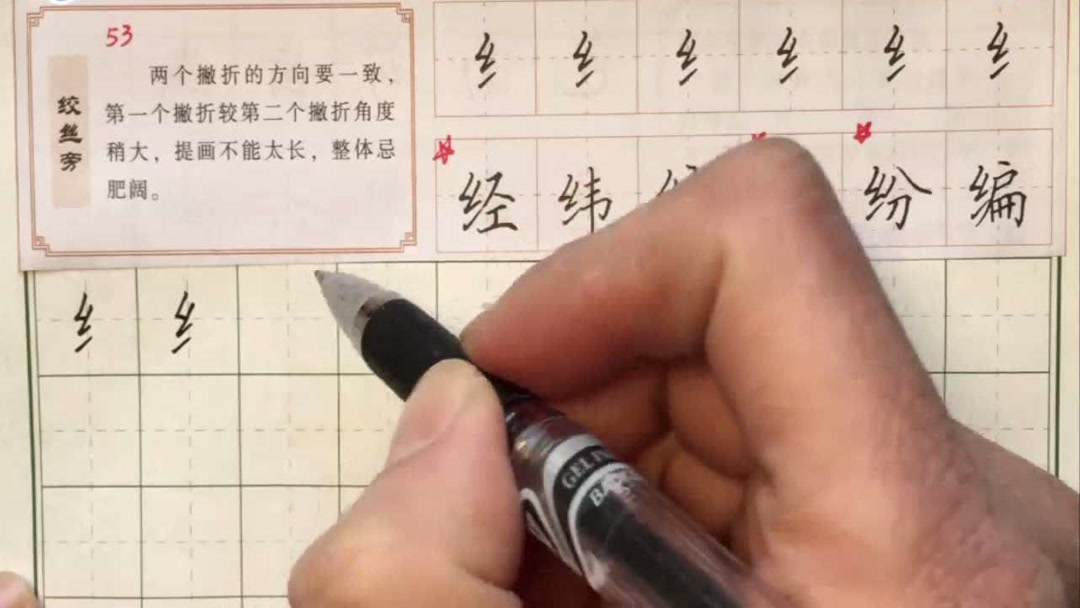 53
绞丝旁
两个撇折的方向要一致，
第一个撇折较第二个撇折角度
稍大，提画不能太长，整体忌
肥阔。
纟 纟 纟 纟 纟 纟
经 纬 纷 编
纟 纟
GEL